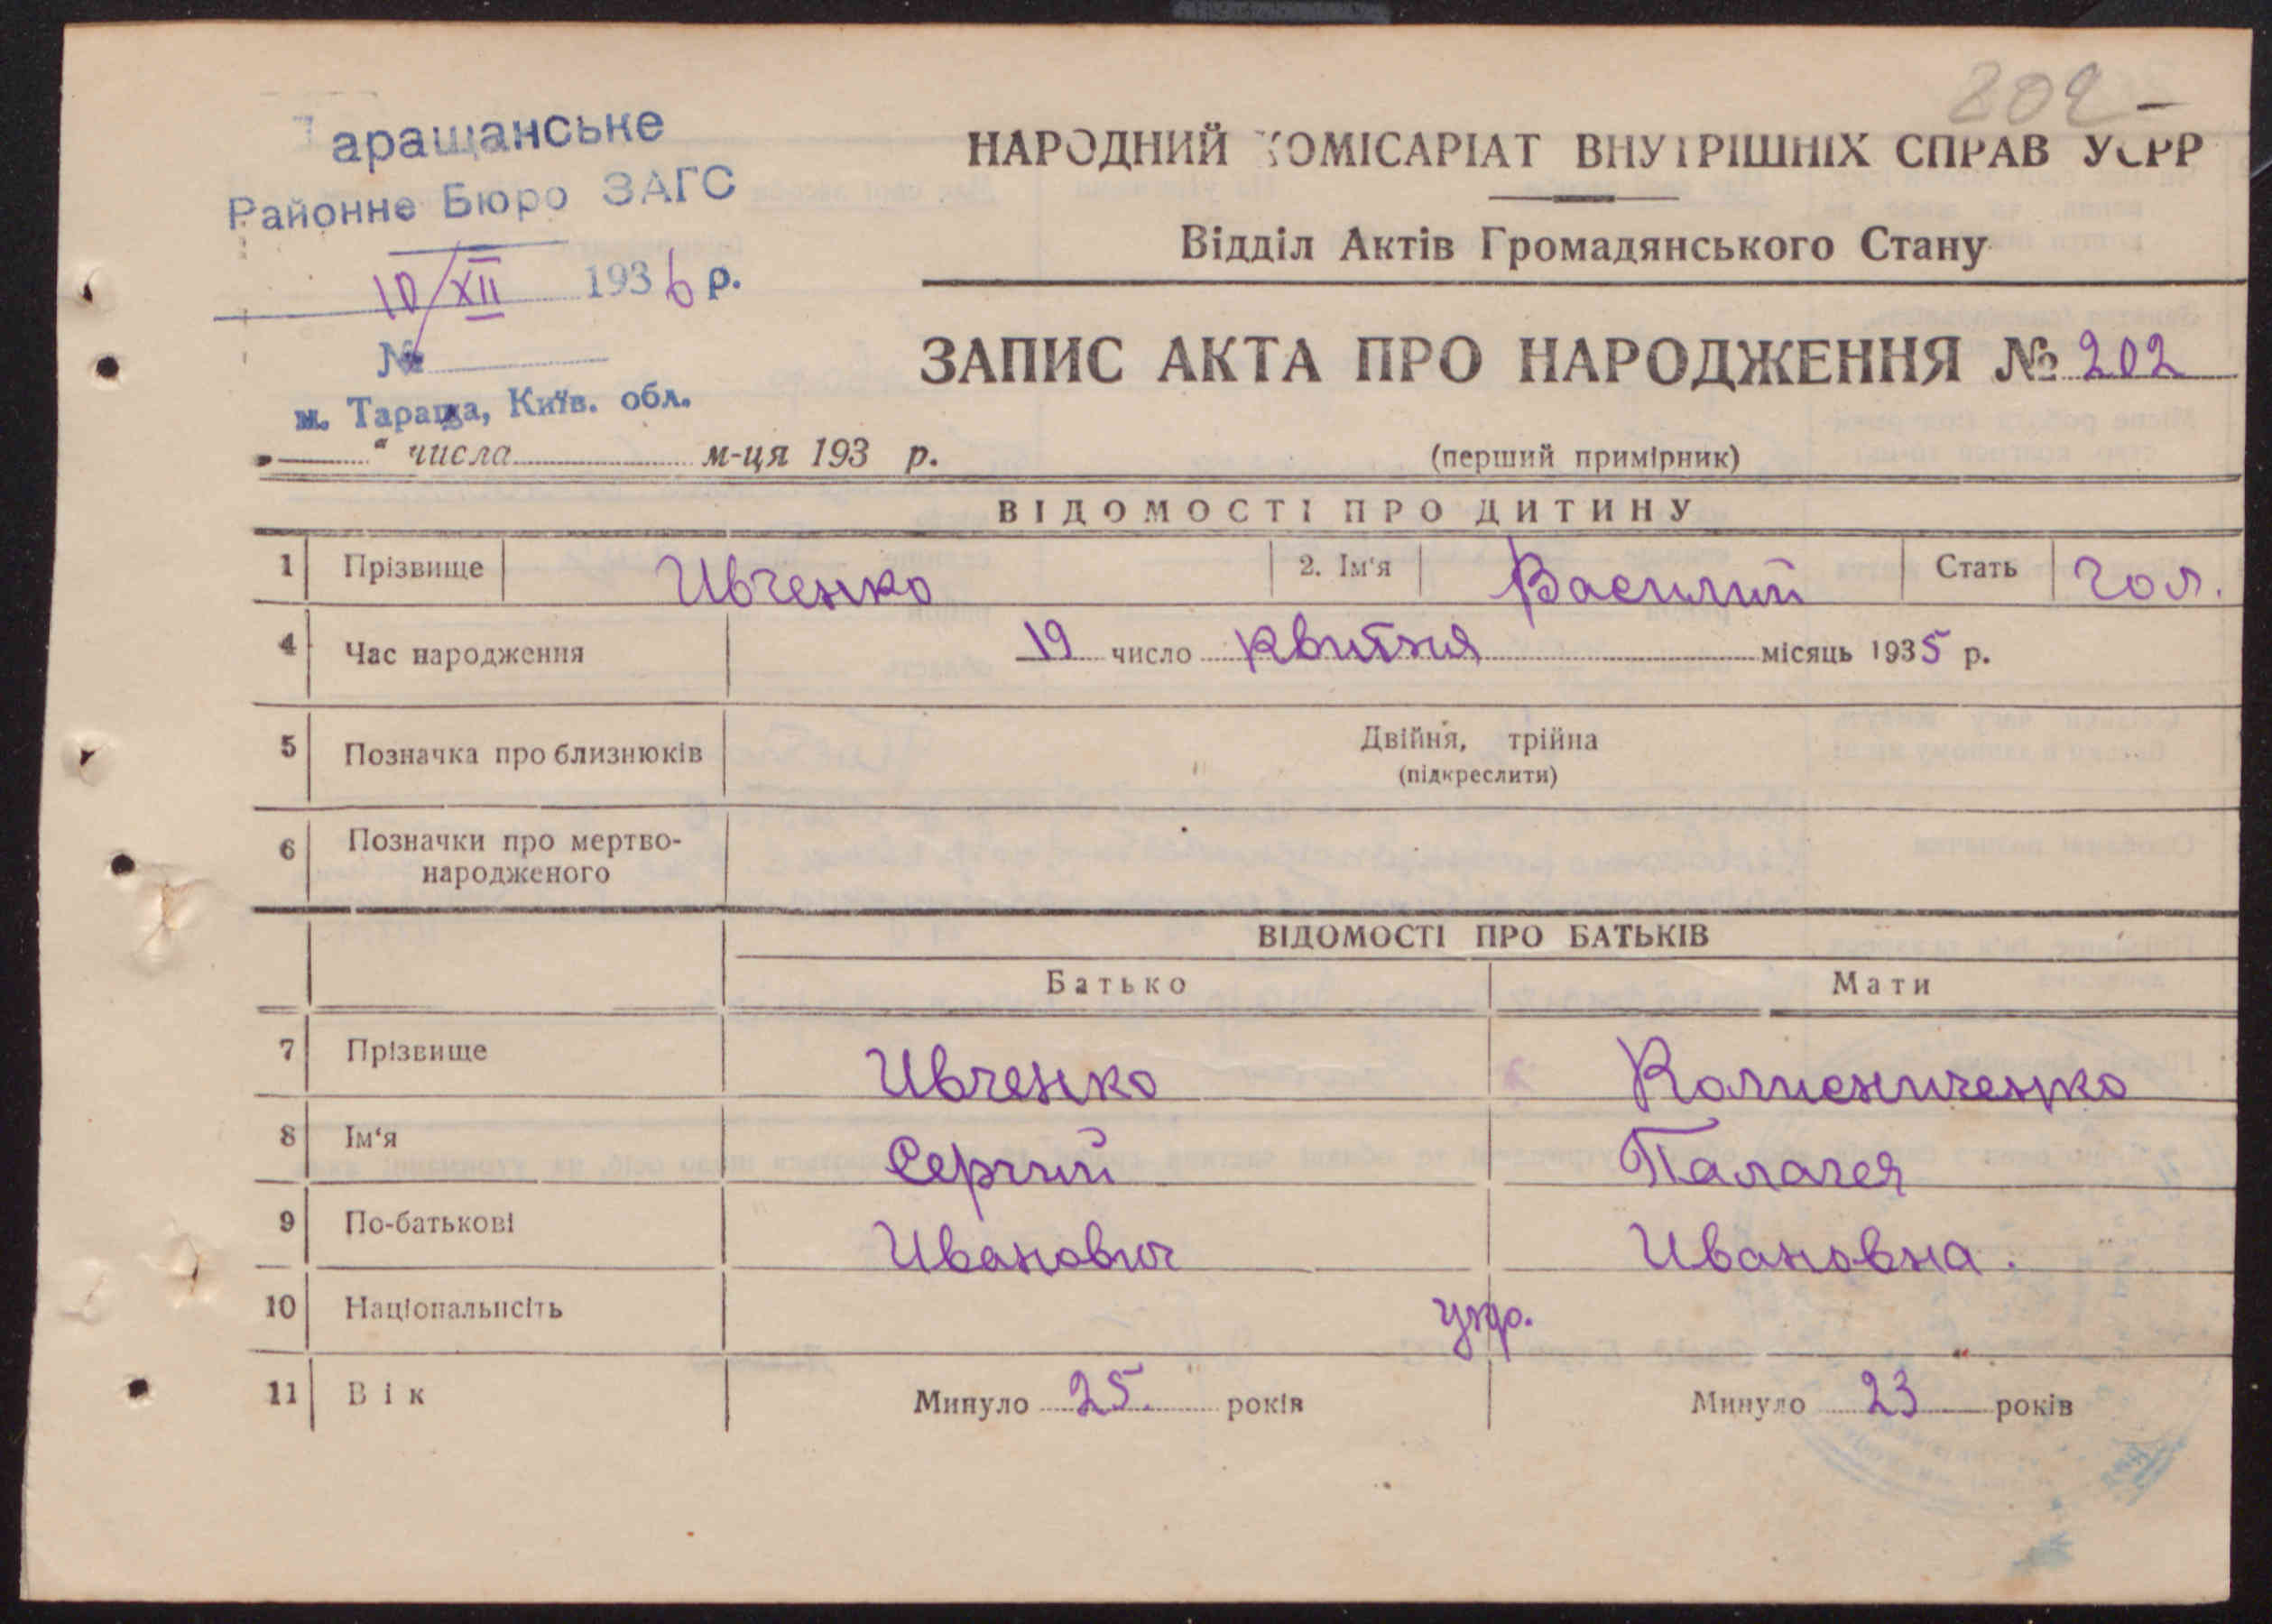 202
Таращанське
Районне Бюро ЗАГС
10/XII 1936 р.
№
м. Тараща, Київ. обл.
„ “ числа м-ця 193 р.
НАРОДНИЙ КОМІСАРІАТ ВНУТРІШНІХ СПРАВ УСРР
Відділ Актів Громадянського Стану
ЗАПИС АКТА ПРО НАРОДЖЕННЯ № 202
(перший примірник)
ВІДОМОСТІ ПРО ДИТИНУ
1 Прізвище Ивченко 2. Ім'я Василий Стать Чол.
4 Час народження 19 число Квитня місяць 1935 р.
5 Позначка про близнюків Двійня, трійна
(підкреслити)
6 Позначки про мертво-
народженого
ВІДОМОСТІ ПРО БАТЬКІВ
Батько Мати
7 Прізвище Ивченко Колисниченко
8 Ім'я Сергий Палагея
9 По-батькові Иванович Ивановна.
10 Національнсіть укр.
11 Вік Минуло 25. років Минуло 23 років